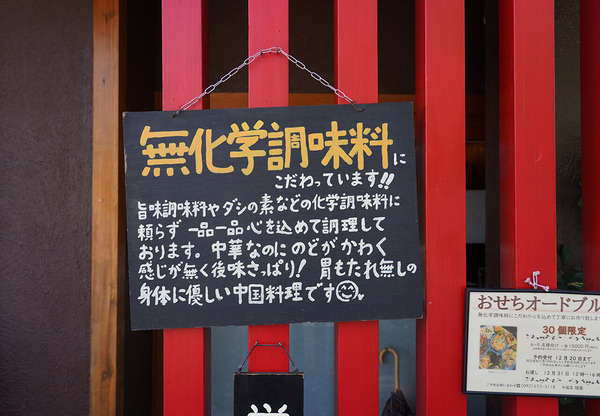 無化学調味料に
こだわっています!!
旨味調味料やダシの素などの化学調味料に
頼らず一品一品心を込めて調理して
おります。中華なのにのどがかわく
感じが無く後味さっぱり!胃もたれ無しの
身体に優しい中国料理です
おせちオードブル
無化学調味料にこだわり心を込めて丁寧にお作り致します
30個限定
予約受付 12月20日まで
お渡し 12月31日 12時〜16時